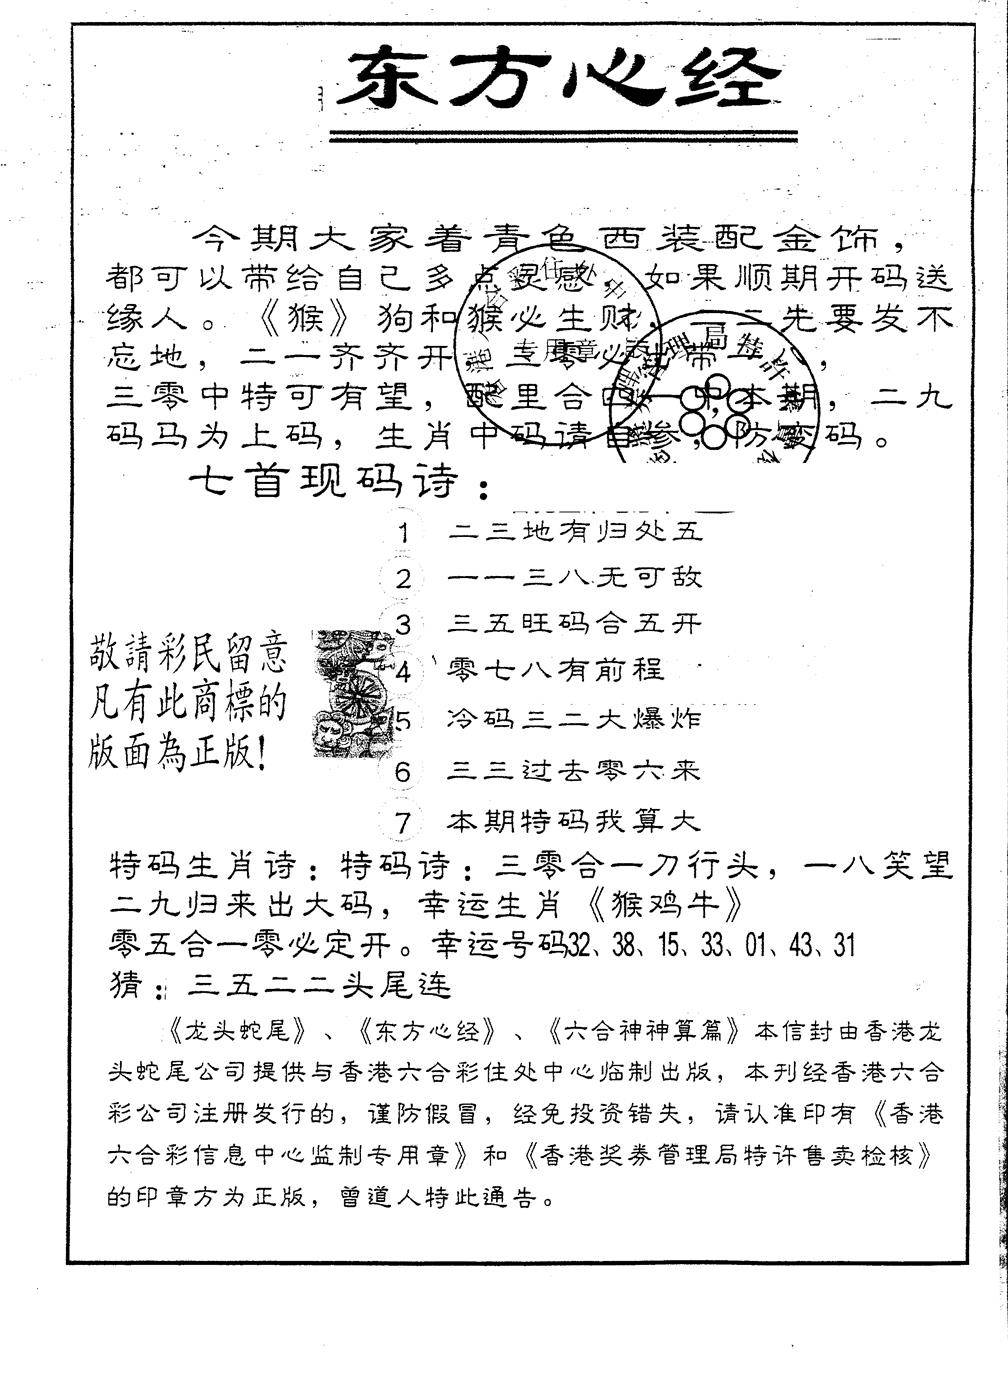 东方心经
今期大家着青色西装配金饰，
都可以带给自己多点灵感，如果顺期开码送
缘人。《猴》狗和猴必生财，一二先要发不
忘地，二一齐齐开，三零必 带
三零中特可有望，配里合四 中本期，二九
码马为上码，生肖中码请自参，防变码。
七首现码诗：
1 二三地有归处五
2 一一三八无可敌
3 三五旺码合五开
4 零七八有前程
5 冷码三二大爆炸
6 三三过去零六来
7 本期特码我算大
敬請彩民留意
凡有此商標的
版面為正版！
特码生肖诗：特码诗：三零合一刀行头，一八笑望
二九归来出大码，幸运生肖《猴鸡牛》
零五合一零必定开。幸运号码32、38、15、33、01、43、31
猜：三五二二头尾连
《龙头蛇尾》、《东方心经》、《六合神神算篇》本信封由香港龙
头蛇尾公司提供与香港六合彩住处中心临制出版，本刊经香港六合
彩公司注册发行的，谨防假冒，经免投资错失，请认准印有《香港
六合彩信息中心监制专用章》和《香港奖券管理局特许售卖检核》
的印章方为正版，曾道人特此通告。
专用章
理局特許